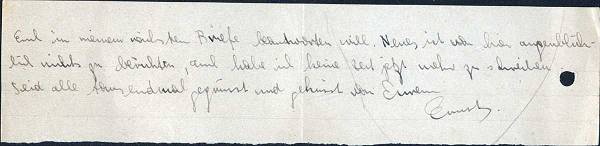 Euch in meinem nächsten Briefe beantworten will. Neues ist von hier augenblick-
lich nichts zu berichten, auch habe ich keine Zeit jetzt mehr zu schreiben.
Seid alle tausendmal gegrüsst und geküsst von Eurem
Ernst.